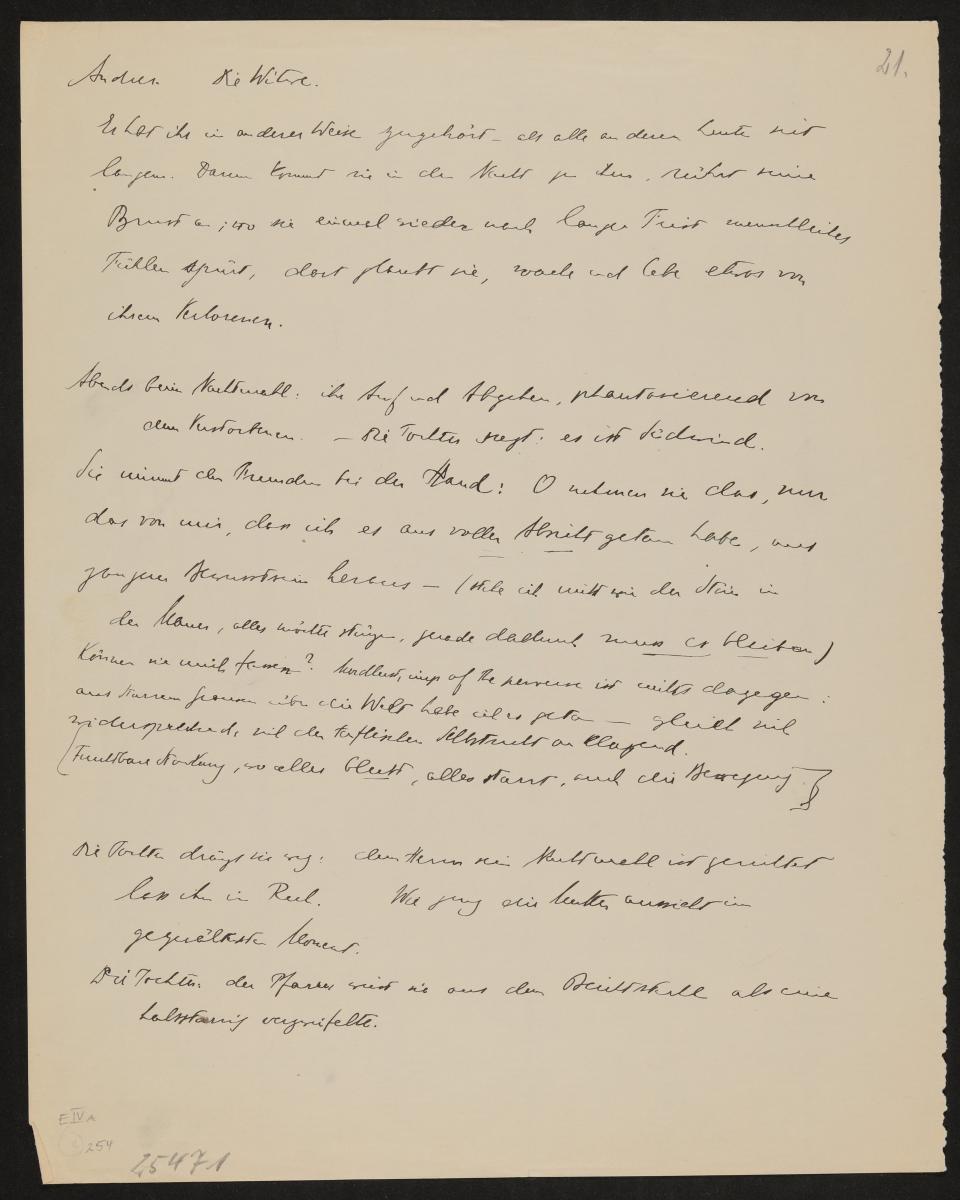 21.
Andreas Die Witwe.
Er hat ihr in anderer Weise zugehört – als alle anderen Leute seit
langem. Darum kommt sie in der Nacht zu ihm, rührt seine
Brust an; wo sie einmal wieder nach langer Frist menschliches
Fühlen spürt, dort glaubt sie, wache und lebe etwas von
ihrem Verlorenen.
Abends beim Nachtmahl: ihr Auf und Abgehen, phantasierend von
dem Verstorbenen. – Die Tochter sagt: es ist Südwind.
Sie nimmt den Fremden bei der Hand: O nehmen sie das, nur
das von mir, dass ich es aus voller Absicht getan habe, aus
ganzem Bewusstsein heraus – (stehe ich nicht wie der Stein in
der Mauer, alles möchte stürzen, gerade dadurch muss es bleiben)
Können sie mich fassen? Mordlust, imp of the perverse ist nichts dagegen:
aus starrem Grausen über die Welt habe ich es getan – gleich sich
widersprechend, sich der teuflischen Selbstsucht anklagend.
(Furchtbare Stockung, wo alles bleibt, alles starrt, auch die Bewegung)
Die Tochter drängt sie weg: dem Herrn sein Nachtmahl ist gerichtet
lass ihn in Ruh. Wie jung die Mutter aussieht im
gequältesten Moment.
Die Tochter: der Pfarrer weist sie aus dem Beichtstuhl als eine
halsstarrig verzweifelte.
E IV A
254
25471